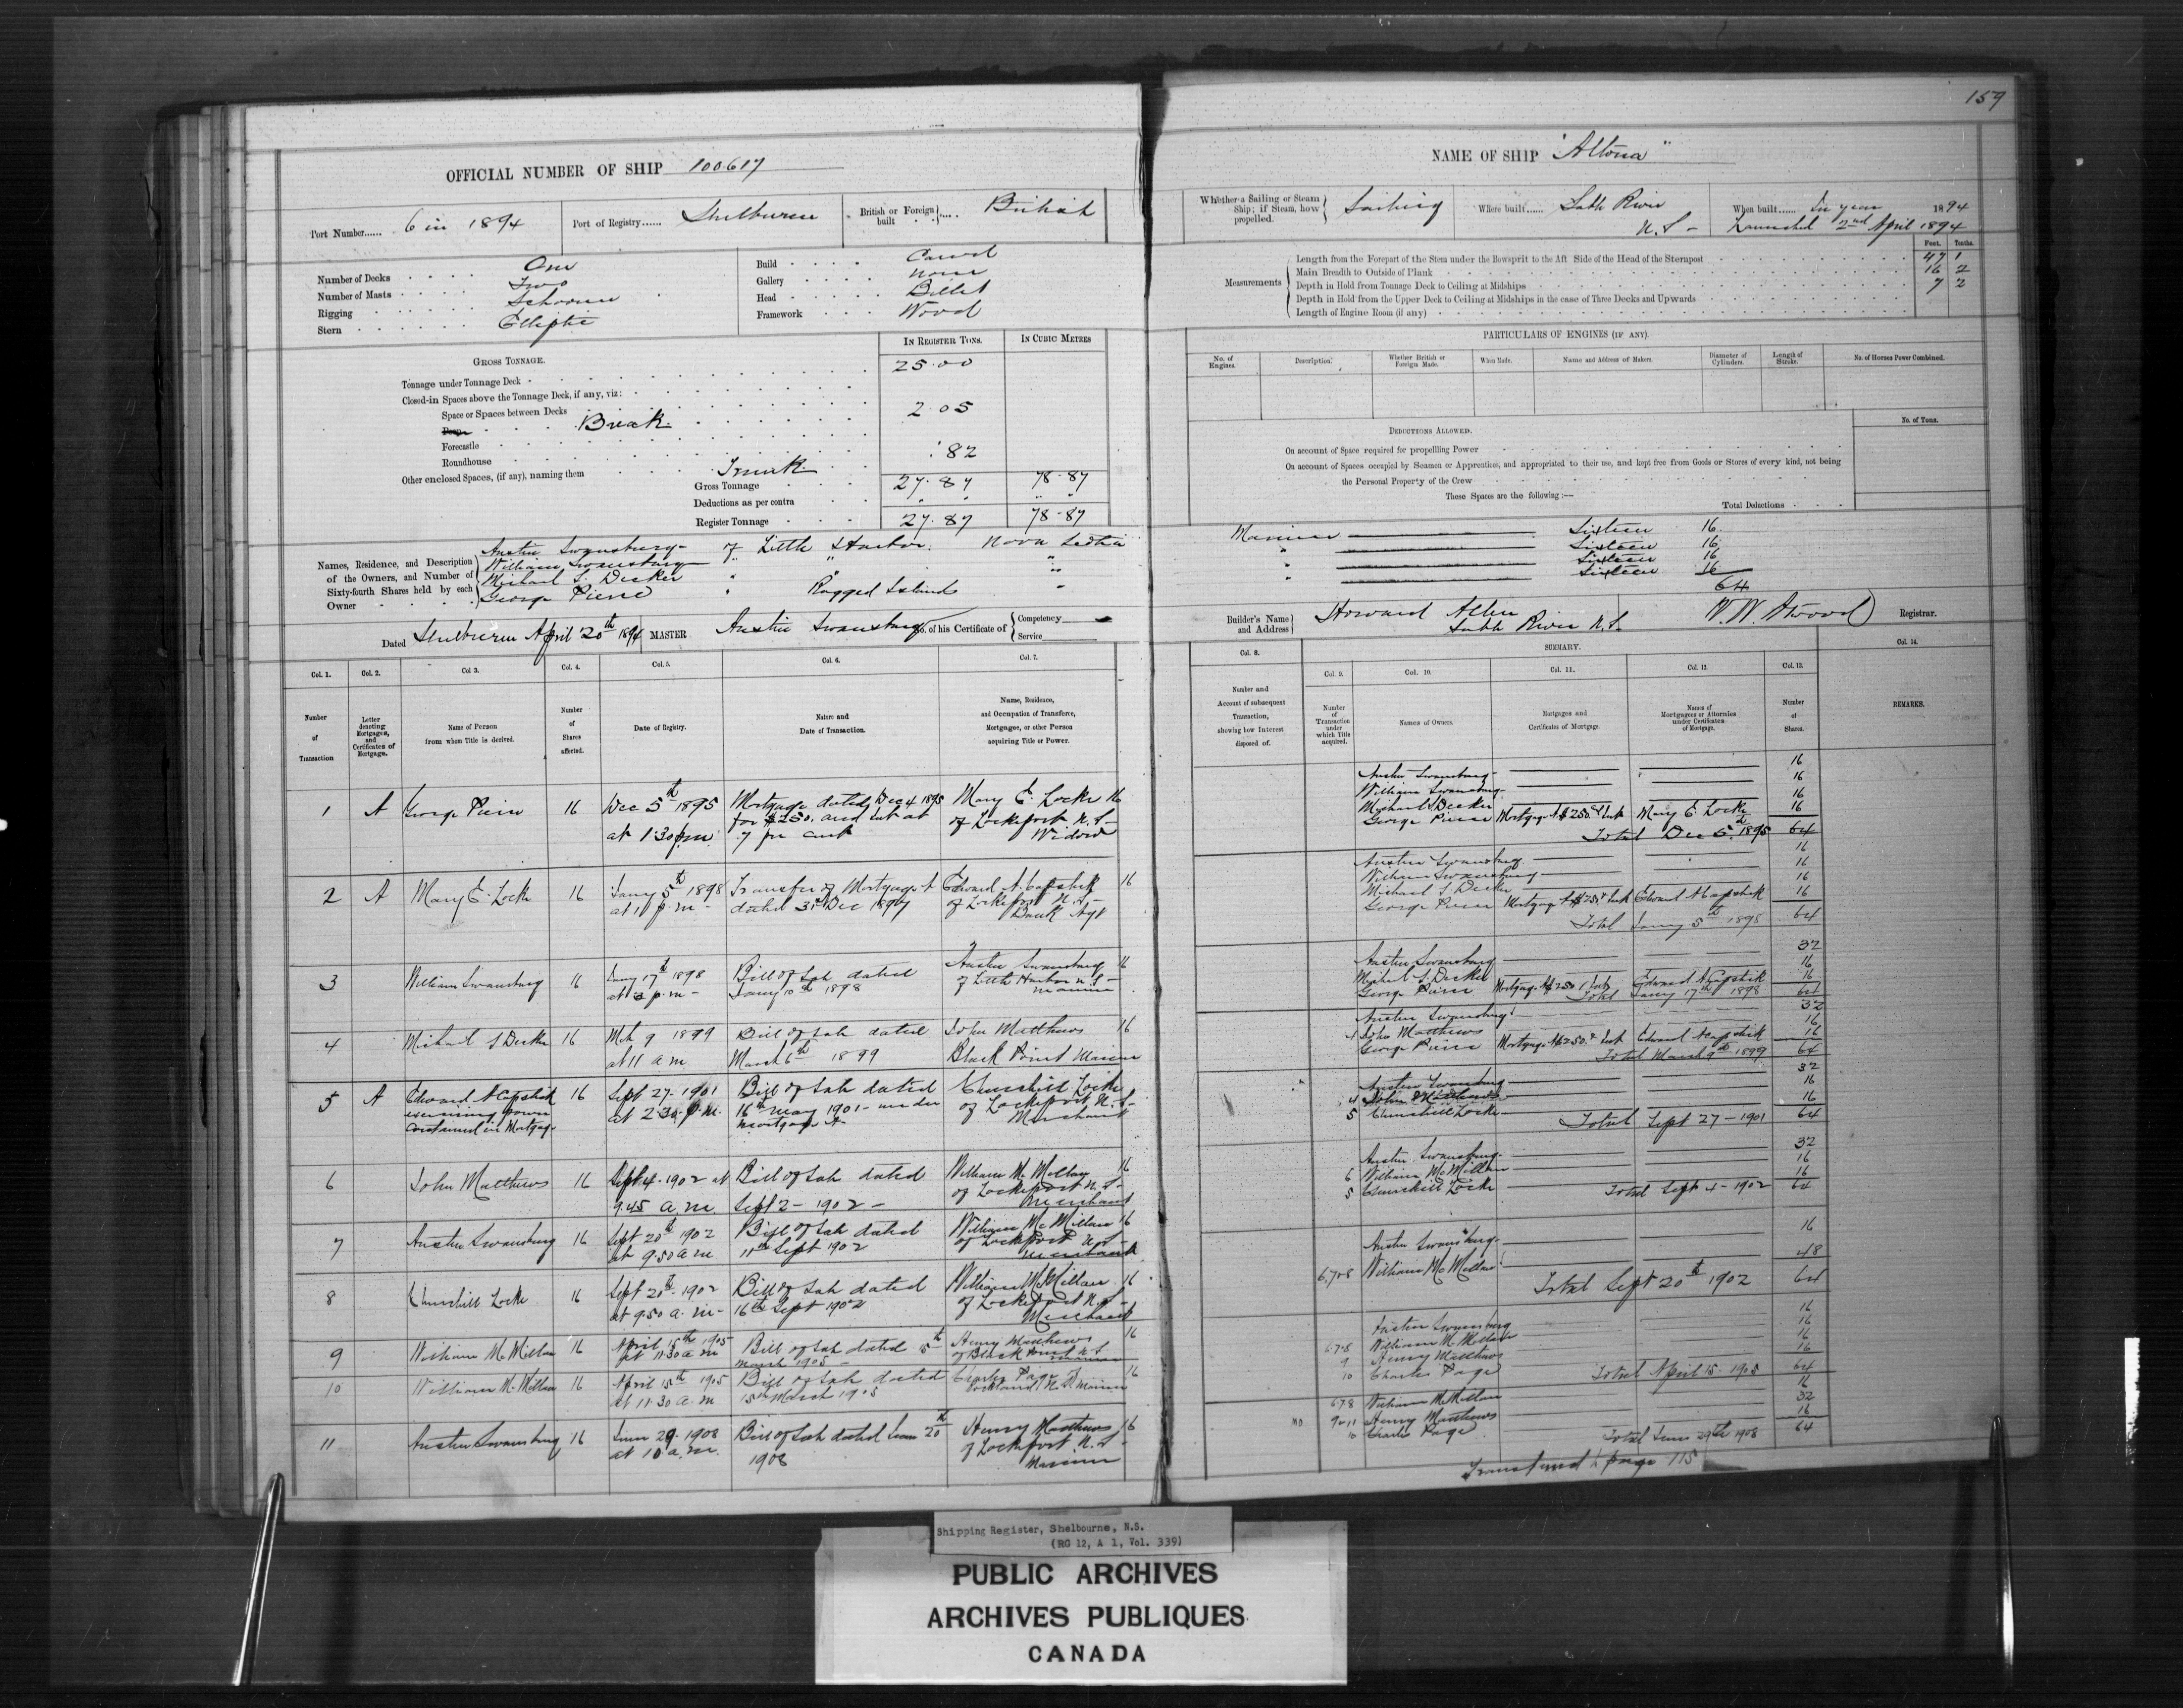 159
OFFICIAL NUMBER OF SHIP 100617
NAME OF SHIP "Altona"
Port Number...... 6 in 1894
Port of Registry...... Shelburne
British or Foreign built .... British
Whether a Sailing or Steam Ship; if Steam, how propelled. Sailing
Where built...... Sable River N.S.
When built...... In year 1894
Launched 2nd April 1894
Number of Decks One
Number of Masts Two
Rigging Schooner
Stern Elliptic
Build Carvel
Gallery None
Head Billet
Framework Wood
Feet. Tenths.
Measurements
Length from the Forepart of the Stem under the Bowsprit to the Aft Side of the Head of the Sternpost 47 1
Main Breadth to Outside of Plank 16 2
Depth in Hold from Tonnage Deck to Ceiling at Midships 7 2
Depth in Hold from the Upper Deck to Ceiling at Midships in the case of Three Decks and Upwards
Length of Engine Room (if any)
GROSS TONNAGE.
IN REGISTER TONS.
IN CUBIC METRES
Tonnage under Tonnage Deck 25.00
Closed-in Spaces above the Tonnage Deck, if any, viz:
Space or Spaces between Decks
Poop Break 2.05
Forecastle
Roundhouse
Other enclosed Spaces, (if any), naming them Trunk .82
Gross Tonnage 27.87 78.87
Deductions as per contra " " " "
Register Tonnage 27.87 78.87
PARTICULARS OF ENGINES (IF ANY).
No. of Engines.
Description.
Whether British or Foreign Made.
When Made.
Name and Address of Makers.
Diameter of Cylinders.
Length of Stroke.
No. of Horses Power Combined.
No. of Tons.
DEDUCTIONS ALLOWED.
On account of Space required for propelling Power
On account of Spaces occupied by Seamen or Apprentices, and appropriated to their use, and kept free from Goods or Stores of every kind, not being
the Personal Property of the Crew
These Spaces are the following :—
Total Deductions
Names, Residence, and Description of the Owners, and Number of Sixty-fourth Shares held by each Owner
Austin Swansburg of Little Harbor Nova Scotia Mariner Sixteen 16
William Swansburg " " " " Sixteen 16
Michael S. Decker " " " Sixteen 16
George Pierce " Ragged Islands " " Sixteen 16
64
Dated Shelburne April 20th 1894 MASTER Austin Swansburg No. of his Certificate of Competency Service
Builder's Name and Address Howard Allen
Sable River N.S.
W. W. Atwood Registrar.
Col. 1. Number of Transaction
Col. 2. Letter denoting Mortgages, and Certificates of Mortgage.
Col. 3. Name of Person from whom Title is derived.
Col. 4. Number of Shares affected.
Col. 5. Date of Registry.
Col. 6. Nature and Date of Transaction.
Col. 7. Name, Residence, and Occupation of Transferee, Mortgagee, or other Person acquiring Title or Power.
Col. 8. Number and Account of subsequent Transaction, showing how Interest disposed of.
SUMMARY.
Col. 9. Number of Transaction under which Title acquired.
Col. 10. Names of Owners.
Col. 11. Mortgages and Certificates of Mortgage.
Col. 12. Names of Mortgagees or Attornies under Certificates of Mortgage.
Col. 13. Number of Shares.
Col. 14. REMARKS.
1 A George Pierce 16 Dec 5th 1895 at 1.30 p.m. Mortgage dated Dec 4 1895 for $250. and Int at 7 per cent Mary E. Locke of Lockeport N.S. Widow 16
2 A Mary E. Locke 16 Jany 5th 1898 at p.m. Transfer of Mortgage A dated 31st Dec 1897 Edward A. Capstick of Lockeport N.S. Bank Agt 16
3 William Swansburg 16 Jany 17th 1898 at 3 p.m. Bill of Sale dated Jany 10th 1898 Austin Swansburg of Little Harbor N.S. Mariner 16
4 Michael S Decker 16 Mch 9 1899 at 11 a m Bill of Sale dated March 6th 1899 John Matthews Black Point Mariner 16
5 A Edward A Capstick exercising power contained in Mortgage 16 Sept 27. 1901 at 2.30 p.m. Bill of Sale dated 16th May 1901 under Mortgage A Churchill Locke of Lockeport N.S. Merchant
6 John Matthews 16 Sept 4. 1902 at 9.45 a.m. Bill of Sale dated Sept 2 - 1902 - William McMillan of Lockeport N.S. Merchant 16
7 Austin Swansburg 16 Sept 20th 1902 at 9.50 a m Bill of Sale dated 11th Sept 1902 William McMillan of Lockeport N.S. Merchant 16
8 Churchill Locke 16 Sept 20th 1902 at 9.50 a.m. Bill of Sale dated 16th Sept 1902 William McMillan of Lockeport N.S. Merchant 16
9 William McMillan 16 April 15th 1905 at 11.30 a m Bill of Sale dated 5th March 1905 Henry Matthews of Black Point N.S. Mariner 16
10 William McMillan 16 April 15th 1905 at 11.30 a.m Bill of Sale dated 15th March 1905 Charles Page of Rockland N.S. Mariner 16
11 Austin Swansburg 16 June 29. 1908 at 10 a.m. Bill of Sale dated June 20th 1908 Henry Matthews of Lockeport N.S. Mariner 16
Austin Swansburg 16
William Swansburg 16
Michael S Decker 16
George Pierce Mortgage A $250. & Int Mary E. Locke 16
Total Dec 5th 1895 64
Austin Swansburg 16
William Swansburg 16
Michael S Decker 16
George Pierce Mortgage A $250. & Int Edward A Capstick 16
Total Jany 5th 1898 64
Austin Swansburg 32
Michael S. Decker 16
George Pierce Mortgage A $250 & Int Edward A Capstick 16
Total Jany 17th 1898 64
Austin Swansburg 32
4 John Matthews 16
George Pierce Mortgage A $250. & Int Edward A Capstick 16
Total March 9th 1899 64
Austin Swansburg 32
4 John Matthews 16
5 Churchill Locke 16
Total Sept 27 - 1901 64
Austin Swansburg 32
6 William McMillan 16
5 Churchill Locke 16
Total Sept 4 - 1902 64
Austin Swansburg 16
6.7.8 William McMillan 48
Total Sept 20th 1902 64
Austin Swansburg 16
6.7.8 William McMillan 16
9 Henry Matthews 16
10 Charles Page 16
Total April 15. 1905 64
6.7.8 William McMillan 16
9 & 11 Henry Matthews 32
10 Charles Page 16
Total June 29th 1908 64
Transferred to page 115
Shipping Register, Shelbourne, N.S.
(RG 12, A 1, Vol. 339)
PUBLIC ARCHIVES
ARCHIVES PUBLIQUES
CANADA